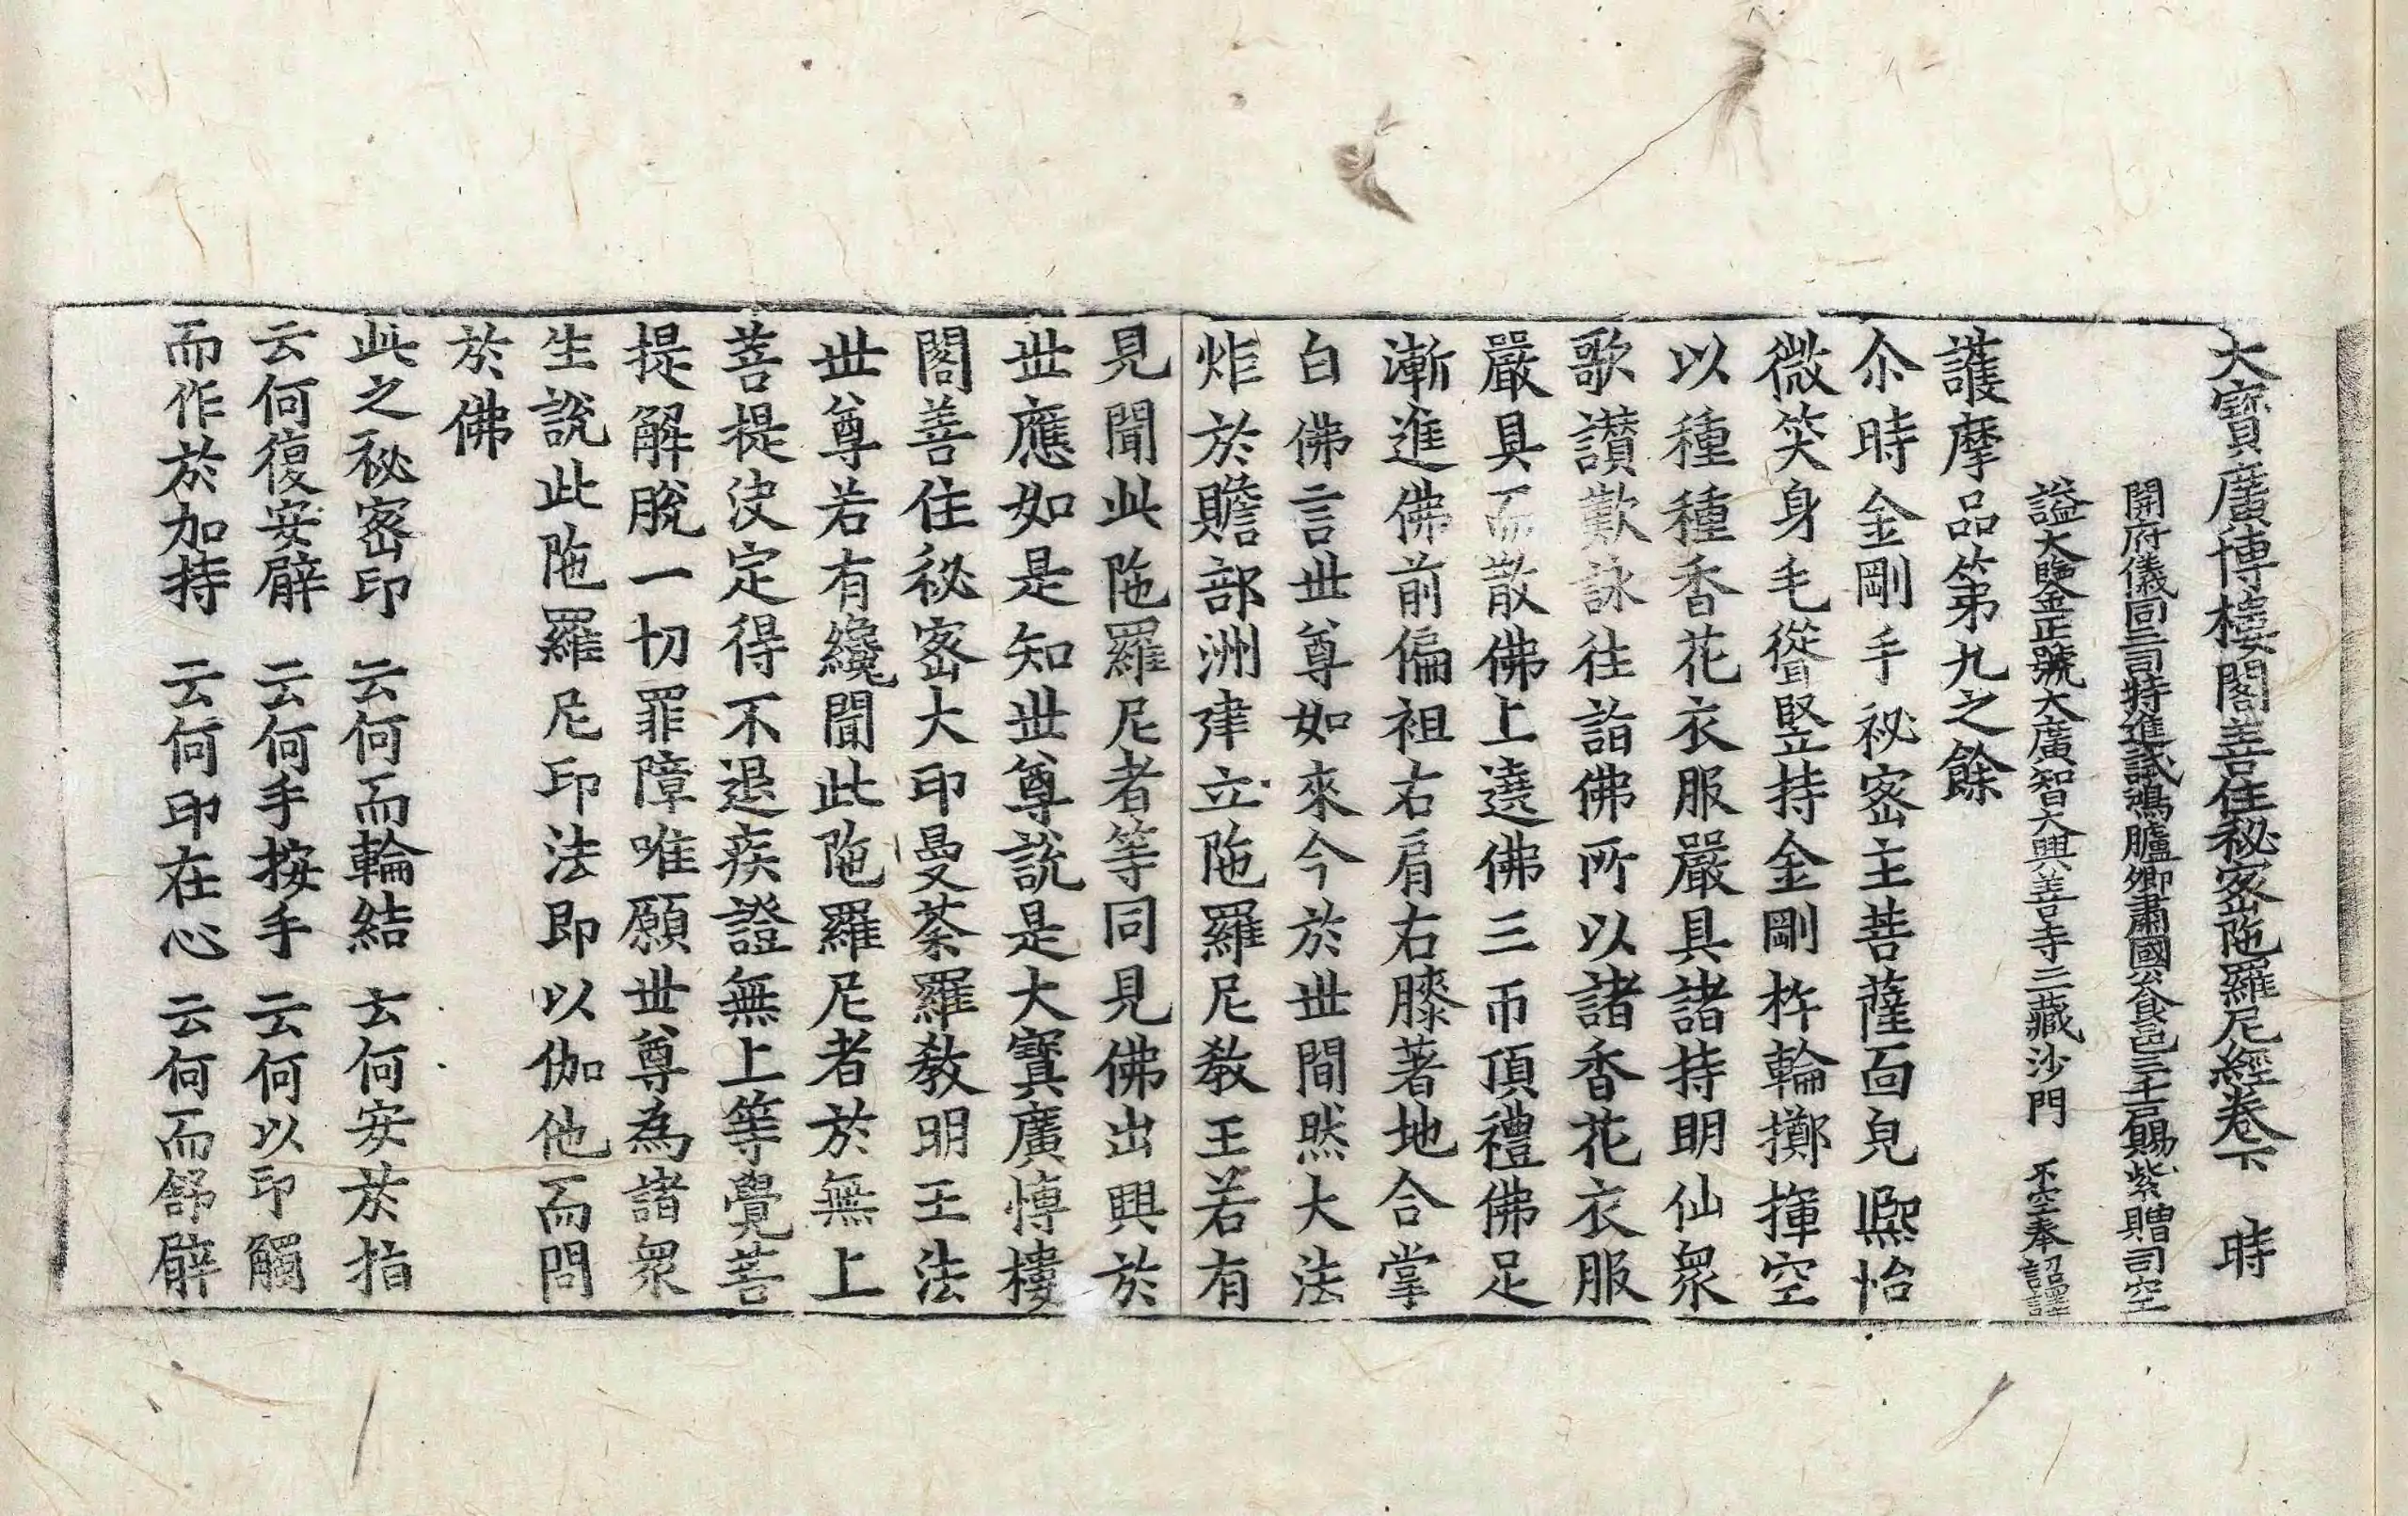 大寶廣博樓閣善住秘密陁羅尼經卷下 時
開府儀同三司特進試鴻臚卿肅國公食邑三千戶賜紫贈司空
謚大鑒正號大廣智大興善寺三藏沙門 不空奉詔譯
護摩品第九之餘
尒時金剛手祕密主菩薩面皃熈怡
微笑身毛聳竪持金剛杵輪擲揮空
以種種香花衣服嚴具諸持明仙衆
歌讃歎詠往詣佛所以諸香花衣服
嚴具而散佛上遶佛三帀頂禮佛足
漸進佛前偏袒右肩右膝著地合掌
白佛言世尊如來今於世間然大法
炬於贍部洲建立陁羅尼教王若有
見聞此陁羅尼者等同見佛出興於
世應如是知世尊說是大寶廣博樓
閣善住祕密大印曼荼羅教明王法
世尊若有纔聞此陁羅尼者於無上
菩提決定得不退疾證無上等覺菩
提解脫一切罪障唯願世尊為諸衆
生說此陁羅尼印法即以伽他而問
於佛
此之祕密印 云何而輪結 云何安於指
云何復安臂 云何手按手 云何以印觸
而作於加持 云何印在心 云何而舒臂